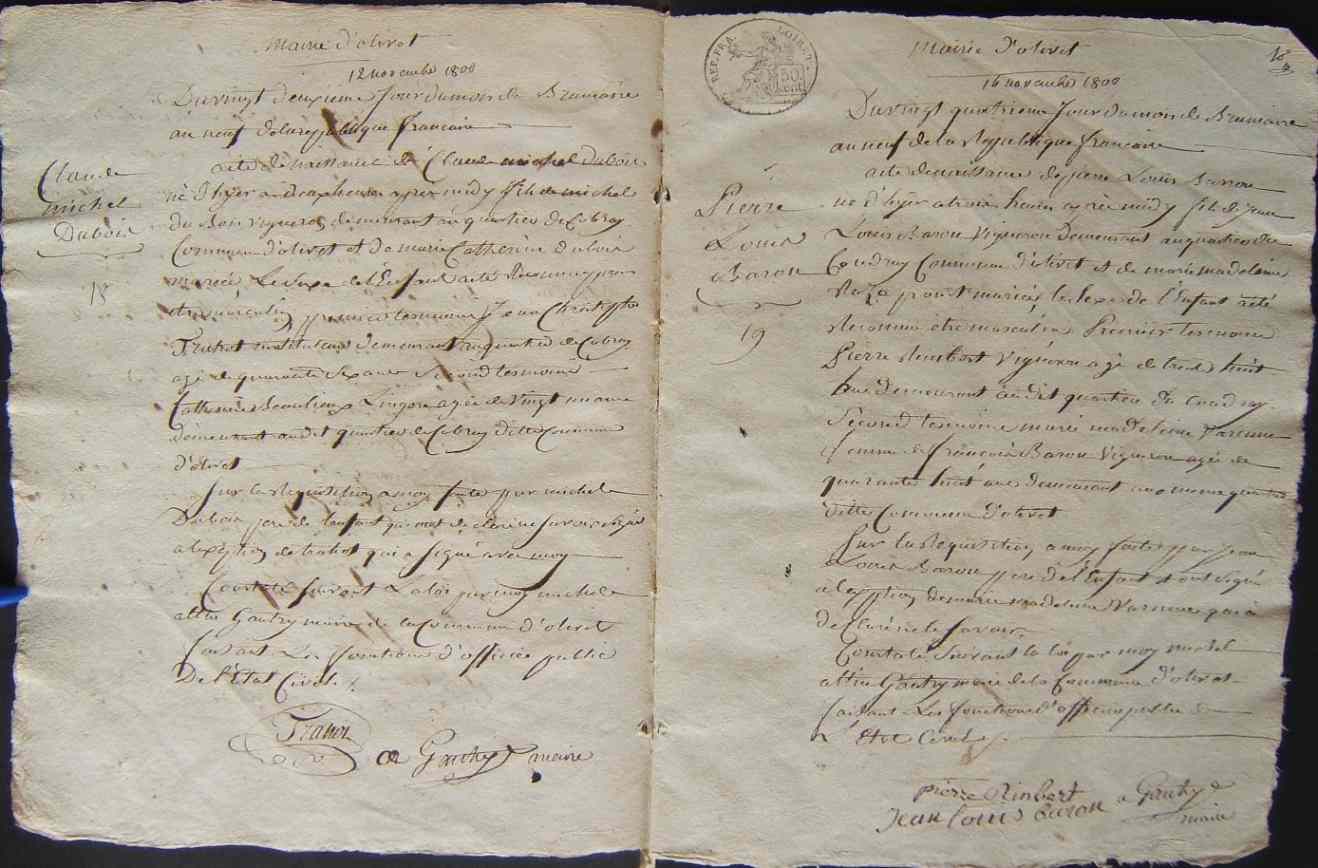 Mairie d'olivet
12 novembre 1800
Du vingt deuxieme Jour du mois de Brumaire
an neuf de la republique francaise
acte de naissance de Claude michel dubois
né d'hyer a heures apres midy fils de michel
du Bois vigneron demeurant au quartier de Cobray
Commune d'olivet et de marie Catherine dubois
mariés Le Sexe de l'Enfant a été Reconnu
etre masculin premier temoin Jean Christophe
instituteur demeurant au quartier de Cobray
agé de quarante ans Second temoin
Catherine Beaulieu Lingere agée de Vingt ans
demeurant audit quartier de Cobray ditte Commune
d'olivet
Sur la Requisition a moy faite par michel
Dubois pere de l'enfant qui ont declaré ne savoir signer
a l'exeption de qui a signé avec moy
Constaté suivant La loi par moy michel
altin Gautry maire de la Commune d'olivet
faisant Les fonctions d'officier public
De l'Etat Civil
Gautry maire
Claude
michel
Dubois
18
REP. FRA. LOIRET
50 cent
Mairie d'olivet
16 novembre 1800
Du vingt quatrieme Jour du mois de Brumaire
an neuf de la Republique francaise
acte de naissance de pierre Louis Baron
né d'hyer a trois heures apres midy fils de Jean
Louis Baron Vigneron demeurant au quartier du
Coudray Commune d'olivet et de marie madeleine
mariés le Sexe de l'Enfant a été
Reconnu être masculin Premier temoin
Pierre Rimbert Vigneron agé de trente huit
ans demeurant audit quartier du Coudray
Second temoin marie madeleine Varenne
femme de françois Baron Vigneron agée de
quarante huit ans demeurant au meme quartier
ditte Commune d'olivet
Sur la Requisition a moy faite par Jean
Louis Baron pere de l'Enfant et ont signé
a l'exeption de marie madeleine Varenne qui a
declaré ne le savoir
Constaté Suivant la loi par moy michel
altin Gautry maire de la Commune d'olivet
faisant Les fonctions d'officier public de
L'Etat Civil
pierre Rimbert
Jean louis baron
Gautry
maire
Pierre
Louis
Baron
19